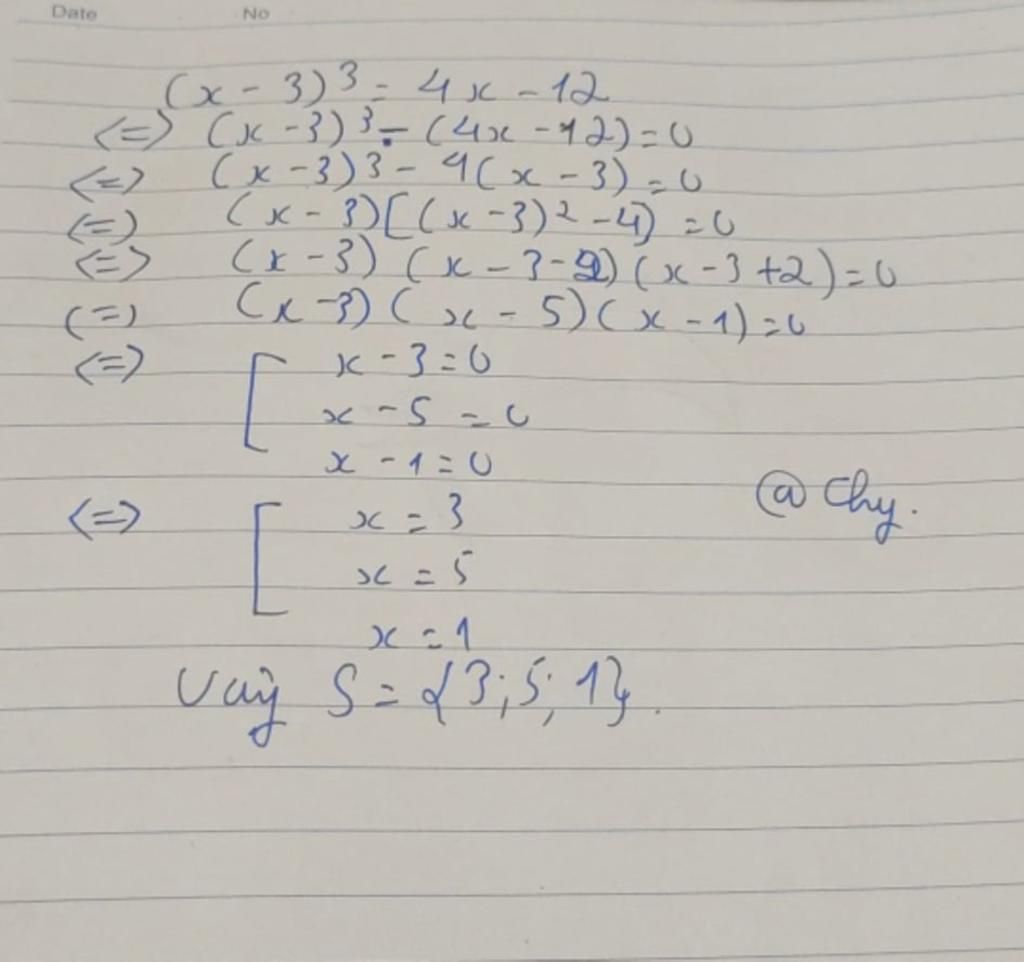 Date No
(x - 3)³ = 4x - 12
<=> (x - 3)³ - (4x - 12) = 0
<=> (x - 3)³ - 4(x - 3) = 0
(=) (x - 3)[(x - 3)² - 4) = 0
<=> (x - 3) (x - 3 - 2) (x - 3 + 2) = 0
(=) (x - 3) (x - 5) (x - 1) = 0
<=> [ x - 3 = 0
x - 5 = 0
x - 1 = 0
@ Chy.
<=> [ x = 3
x = 5
x = 1
Vậy S = {3; 5; 1}.